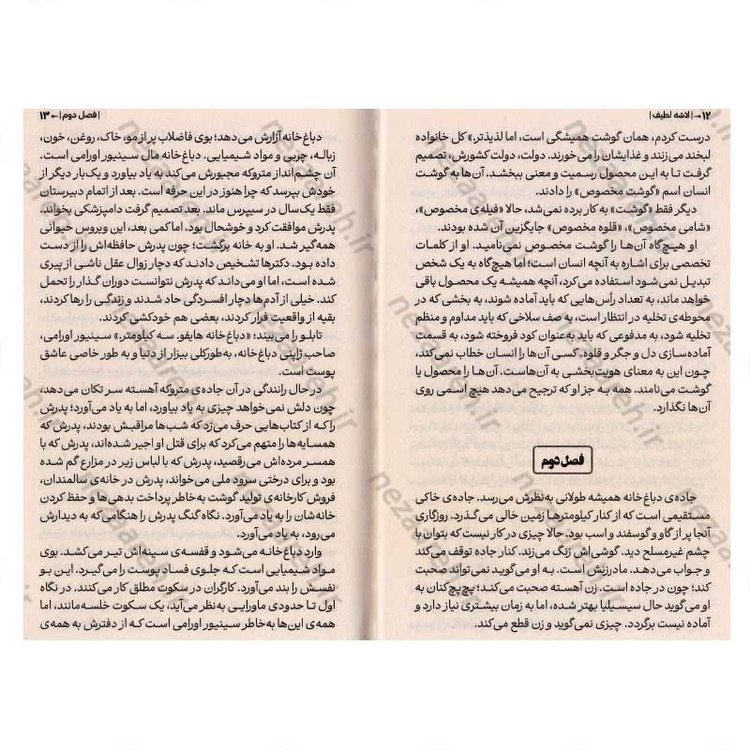 ۱۲ → | لاشه لطیف |
درست کردم، همان گوشت همیشگی است، اما لذیذتر.» کل خانواده
لبخند می‌زنند و غذایشان را می‌خورند. دولت، دولت کشورش، تصمیم
گرفت تا به این محصول رسمیت و معنی ببخشد. آن‌ها به گوشت
انسان اسم «گوشت مخصوص» را دادند.
دیگر فقط «گوشت» به کار برده نمی‌شد، حالا «فیله‌ی مخصوص»،
«شامی مخصوص»، «قلوه مخصوص» جایگزین آن شده بودند.
او هیچ‌گاه آن‌ها را گوشت مخصوص نمی‌نامید. او از کلمات
تخصصی برای اشاره به آنچه انسان است؛ اما هیچ‌گاه به یک شخص
تبدیل نمی‌شود استفاده می‌کرد، آنچه همیشه یک محصول باقی
خواهد ماند، به تعداد رأس‌هایی که باید آماده شوند، به بخشی که در
محوطه‌ی تخلیه در انتظار است، به صف سلاخی که باید مداوم و منظم
تخلیه شود، به مدفوعی که باید به‌عنوان کود فروخته شود، به قسمت
آماده‌سازی دل و جگر و قلوه. کسی آن‌ها را انسان خطاب نمی‌کند،
چون این به معنای هویت‌بخشی به آن‌هاست. آن‌ها را محصول یا
گوشت می‌نامند. همه به جز او که ترجیح می‌دهد هیچ اسمی روی
آن‌ها نگذارد.
فصل دوم
جاده‌ی دباغ‌خانه همیشه طولانی به‌نظرش می‌رسد. جاده‌ی خاکی
مستقیمی است که از کنار کیلومترها زمین خالی می‌گذرد. روزگاری
آنجا پر از گاو و گوسفند و اسب بود. حالا چیزی در کار نیست که بتوان با
چشم غیرمسلح دید. گوشی‌اش زنگ می‌زند. کنار جاده توقف می‌کند
و جواب می‌دهد. مادرزنش است. به او می‌گوید نمی‌تواند صحبت
کند؛ چون در جاده است. زن آهسته صحبت می‌کند؛ پچ‌پچ‌کنان به
او می‌گوید حال سیسیلیا بهتر شده، اما به زمان بیشتری نیاز دارد و
آماده نیست برگردد. چیزی نمی‌گوید و زن قطع می‌کند.
| فصل دوم | ← ۱۳
دباغ‌خانه آزارش می‌دهد؛ بوی فاضلاب پر از مو، خاک، روغن، خون،
زباله، چربی و مواد شیمیایی. دباغ‌خانه مال سینیور اورامی است.
آن چشم‌انداز متروکه مجبورش می‌کند به یاد بیاورد و یک‌بار دیگر از
خودش بپرسد که چرا هنوز در این حرفه است. بعد از اتمام دبیرستان
فقط یک‌سال در سیپرس ماند. بعد تصمیم گرفت دامپزشکی بخواند.
پدرش موافقت کرد و خوشحال بود. اما کمی بعد، این ویروس حیوانی
همه‌گیر شد. او به خانه برگشت؛ چون پدرش حافظه‌اش را از دست
داده بود. دکترها تشخیص دادند که دچار زوال عقل ناشی از پیری
شده است، اما او می‌داند که پدرش نتوانست دوران گذار را تحمل
کند. خیلی از آدم‌ها دچار افسردگی حاد شدند و زندگی را رها کردند،
بقیه از واقعیت فرار کردند، بعضی هم خودکشی کردند.
تابلو را می‌بیند؛ «دباغ‌خانه هایفو. سه کیلومتر.» سینیور اورامی،
صاحب ژاپنی دباغ‌خانه، به‌طورکلی بیزار از دنیا و به طور خاصی عاشق
پوست است.
در حال رانندگی در آن جاده‌ی متروکه آهسته سر تکان می‌دهد،
چون دلش نمی‌خواهد چیزی به یاد بیاورد، اما به یاد می‌آورد؛ پدرش
را که از کتاب‌هایی حرف می‌زد که شب‌ها مراقبش بودند، پدرش که
همسایه‌ها را متهم می‌کرد که برای قتل او اجیر شده‌اند، پدرش که با
همسر مرده‌اش می‌رقصید، پدرش که با لباس زیر در مزارع گم شده
بود و برای درختی سرود ملی می‌خواند، پدرش در خانه‌ی سالمندان،
فروش کارخانه‌ی تولید گوشت به‌خاطر پرداخت بدهی‌ها و حفظ کردن
خانه‌شان را به یاد می‌آورد. نگاه گنگ پدرش را هنگامی‌که به دیدارش
می‌رود، به یاد می‌آورد.
وارد دباغ‌خانه می‌شود و قفسه‌ی سینه‌اش تیر می‌کشد. بوی
مواد شیمیایی است که جلوی فساد پوست را می‌گیرد. این بو
نفسش را بند می‌آورد. کارگران در سکوت مطلق کار می‌کنند. در نگاه
اول تا حدودی ماورایی به‌نظر می‌آید، یک سکوت خلسه‌مانند، اما
همه‌ی این‌ها به‌خاطر سینیور اورامی است که از دفترش به همه‌ی
nezaareh.ir